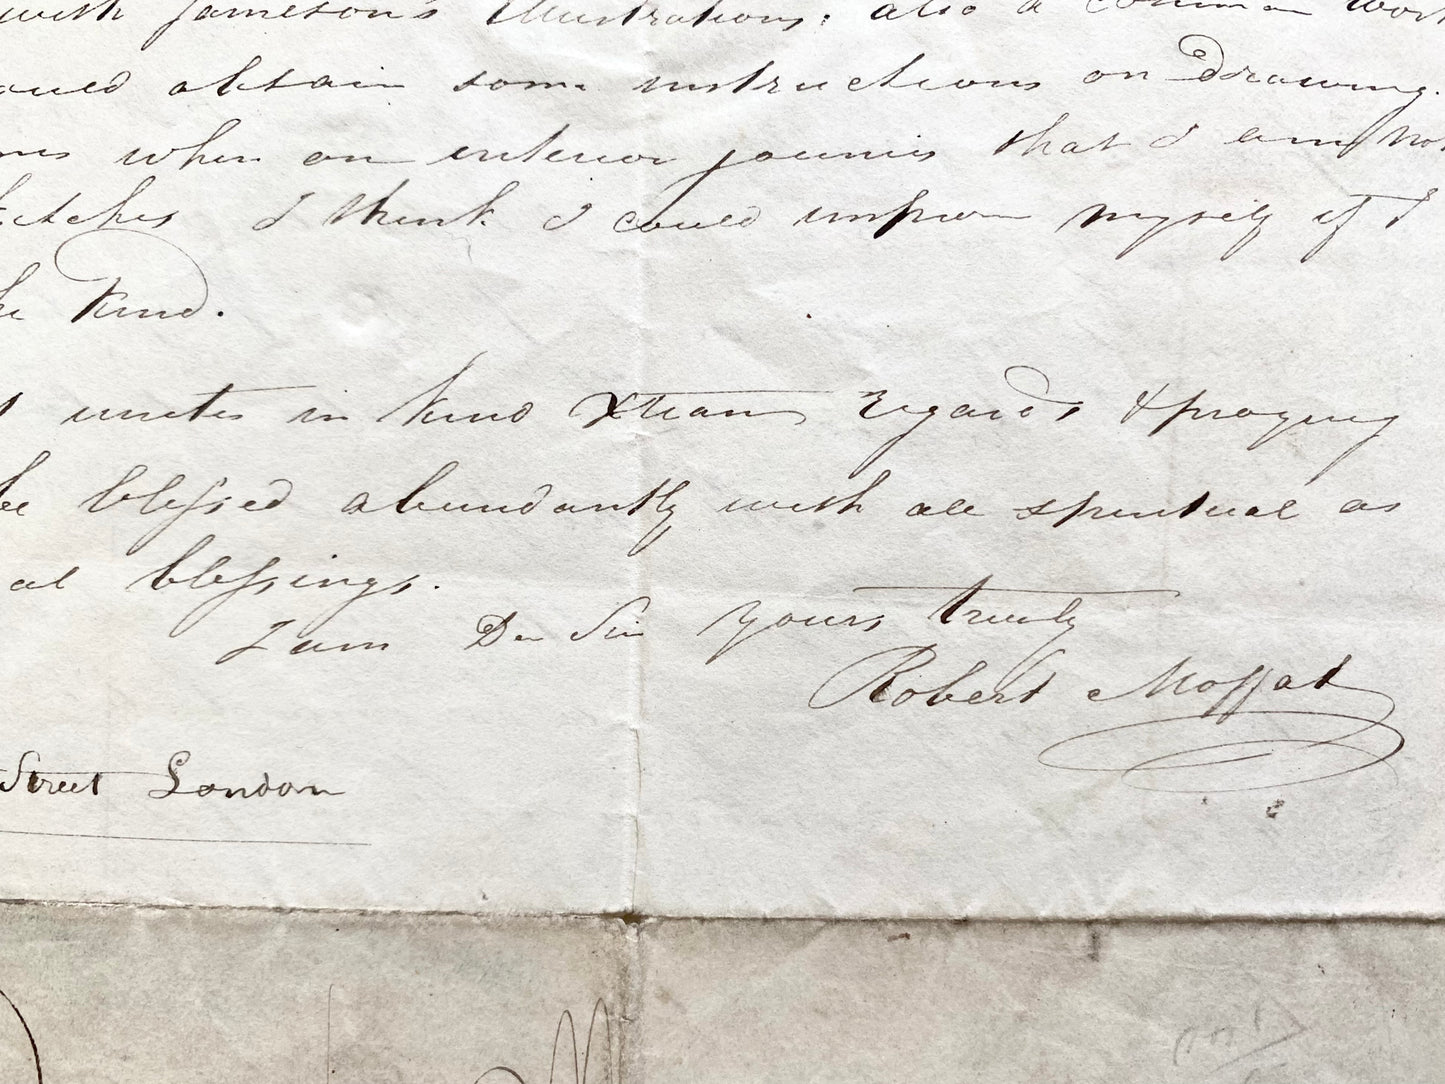 with Jameson's Illustrations; also a common work
obtain some instructions on Drawing.
when on interior journies that I am not
I think I could improve myself if I
kind.
unites in kind Xtian regards & praying
blessed abundantly with all spiritual as
al blessings.
I am Dr Sir yours truly
Robert Moffat
Street London